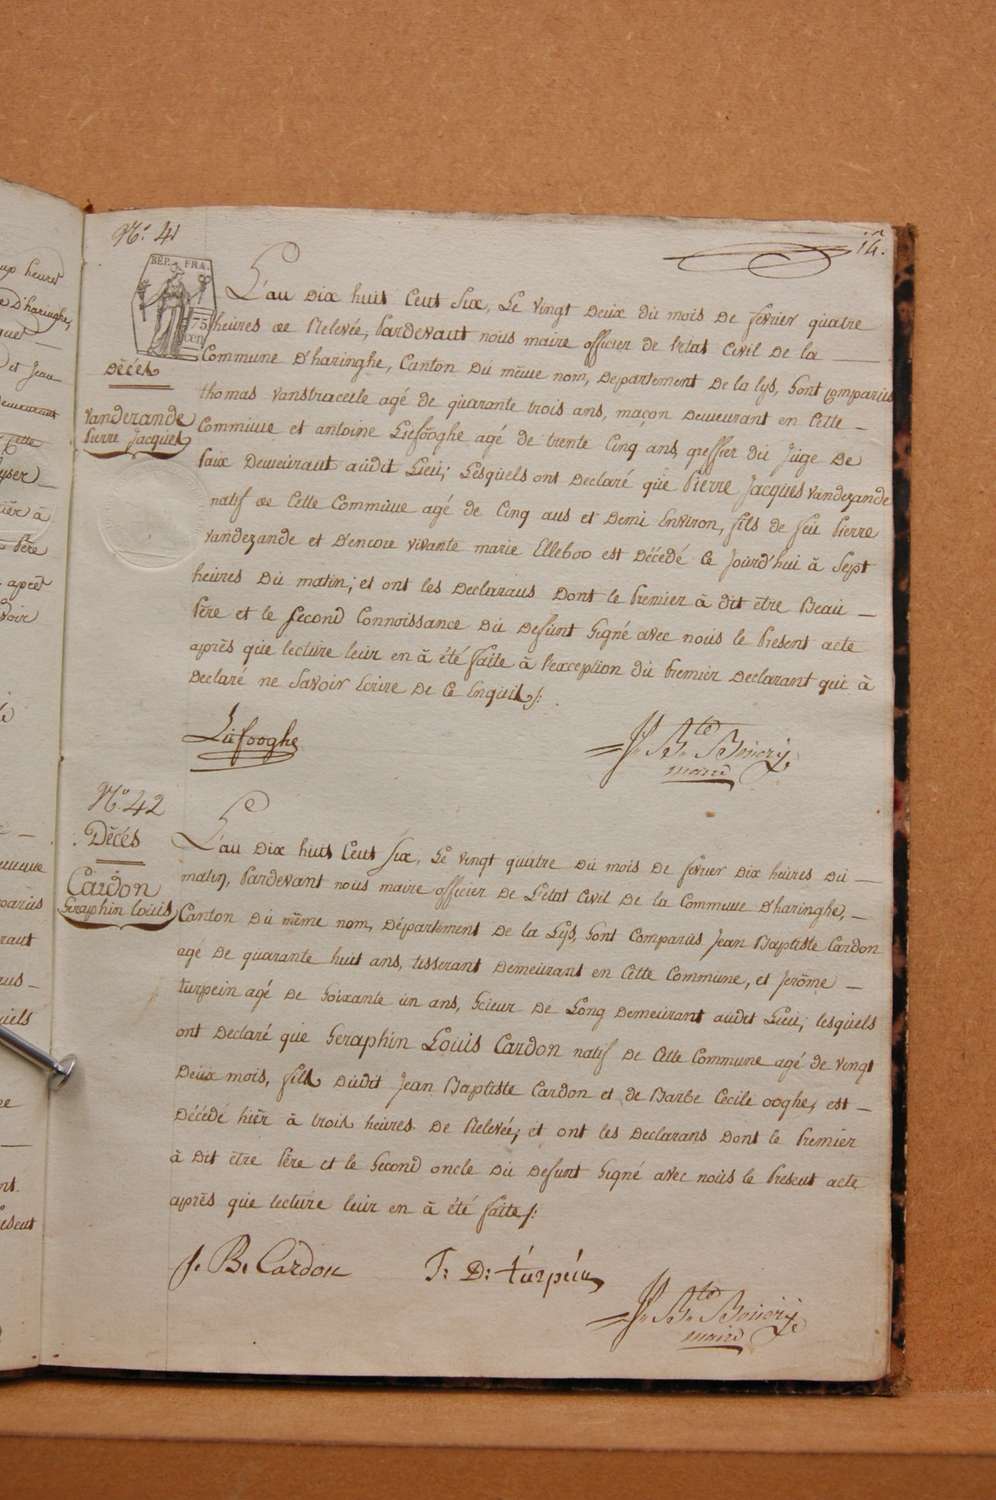 14.
N.º 41
REP. FRA.
75
cen
Décés
Vandezande
Pierre Jacques
L'an Dix huit Cent Six, Le vingt Deux du mois De fevrier quatre
heures de Relevée, Pardevant nous maire officier de l'etat Civil De la
Commune D'haringhe, Canton Du même nom, Departement De la lys, Sont comparus
thomas vanstraceele agé de quarante trois ans, maçon Demeurant en Cette
Commune et antoine Liefooghe agé de trente Cinq ans, greffier du Juge De
Paix Demeurant audit Lieu; Lesquels ont Declaré que Pierre Jacques vandezande
natif de Cette Commune agé de Cinq ans et Demi Environ, fils de feu Pierre
vandezande et D'encore vivante marie Elleboo est Décédé Ce Jourd'hui à Sept
heures Du matin; et ont les Declarans Dont le Premier à dit être Beau
Pére et le Second Connoissance Du Defunt Signé avec nous le Present acte
aprés que lecture leur en à été faite à l'exception du Premier Declarant qui à
Declaré ne Savoir Ecrire De Ce Enquit /:
Liefooghe
J. B.te
maire
N.º 42
Décés
Cardon
Seraphin Louis
L'an Dix huit Cent Six, Le vingt quatre Du mois De fevrier Dix heures Du
matin, Pardevant nous maire officier De L'etat Civil De la Commune D'haringhe,
Canton Du même nom, Département De la Lys, Sont Comparus Jean Baptiste Cardon
agé De quarante huit ans, tisserant Demeurant en Cette Commune, et Jerôme
turpein agé De Soixante un ans, Scieur De Long Demeurant audit Lieu; lesquels
ont Declaré que Seraphin Louis Cardon natif De Cette Commune agé de vingt
Deux mois, fils Dudit Jean Baptiste Cardon et de Barbe Cecile ooghe, est
Décédé hier à trois heures De Relevée; et ont les Declarans Dont le Premier
à Dit être Pére et le Second oncle Du Defunt Signé avec nous le Present acte
aprés que lecture leur en à été faite /:
J. B. Cardon
J: D: turpein
J. B.te
maire